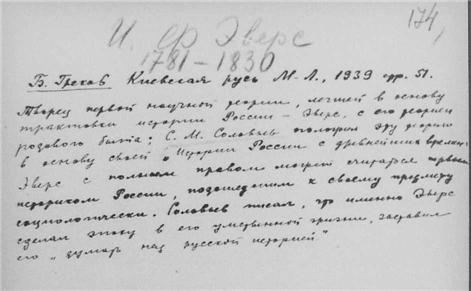 174,
И. Ф. Эверс
1781 – 1830
Б. Греков Киевская русь М-Л., 1939 стр. 51.
Творец первой научной теории, легшей в основу
трактовки истории России – Эверс, с его теорией
родового быта; С. М. Соловьев положил эту теорию
в основу своей „Истории России с древнейших времен“
Эверс с полным правом может считаться первым
историком России, подошедшим к своему предмету
социологически. Соловьев писал, что именно Эверс
сделал эпоху в его умственной жизни, заставил
его „думать над русской историей“